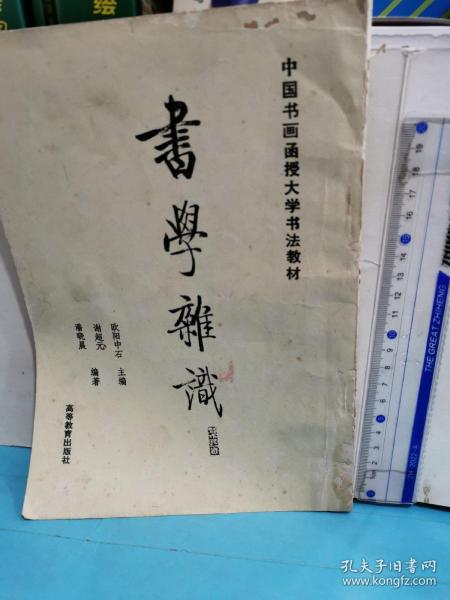 中国书画函授大学书法教材
書學雜識
欧阳中石 主编
谢超元
潘晓晨 编著
高等教育出版社
绘
THE GREAT ZHIHENG
孔夫子旧书网
www.kongfz.com